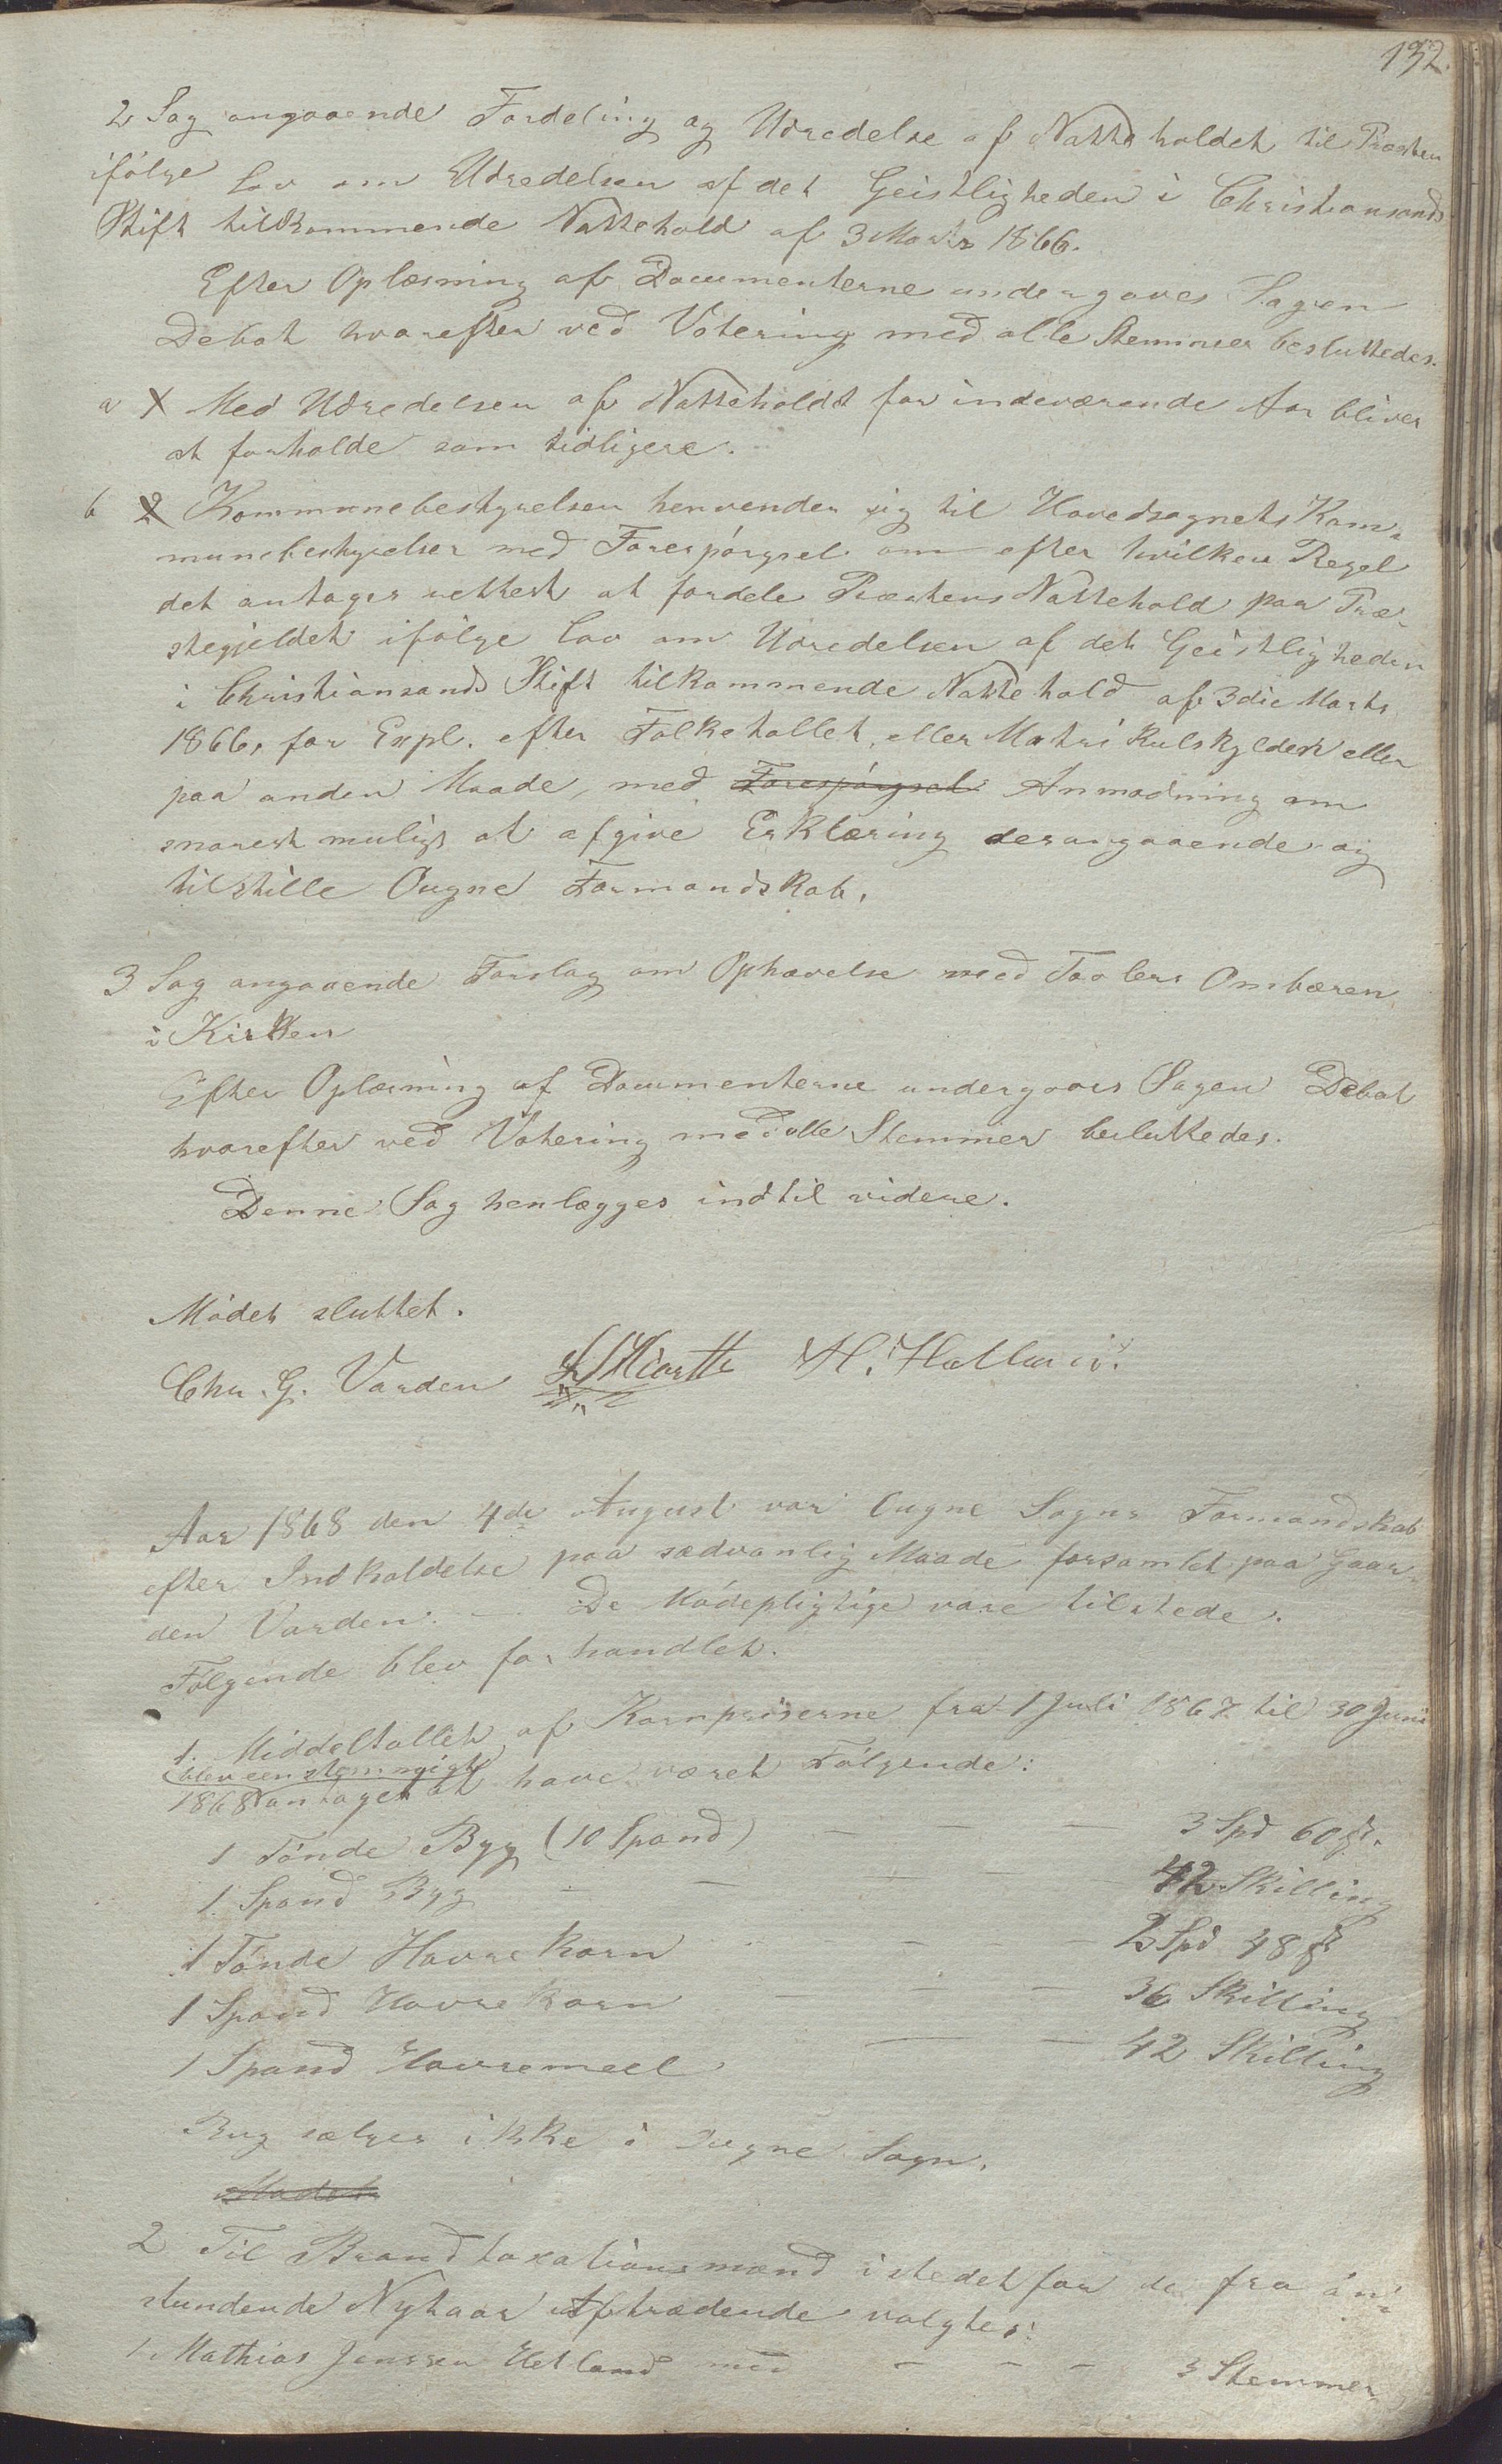 132.
2 Sag angaaende Fordeling og Udredelse af Natteholdet til Præsten
ifölge Lov om Udredelsen af det Geistligheden i Christiansands
Stift tilkommende Nattehold af 3 Marts 1866.
Efter Oplæsning af Documenterne undergaves Sagen
Debat hvorefter ved Votering med alle Stemmer besluttedes.
a Med Udredelsen af Natteholdet for indeværende Aar bliver
at forholde som tidligere.
b Kommunebestyrelsen henvender sig til Hovedsognets Kom-
munebestyrelser med Forespörgsel om efter hvilken Regel
det antages rettest at fordele Præstens Nattehold paa Præ-
stegjeldet ifölge Lov om Udredelsen af det Geistligheden
i Christiansands Stift tilkommende Nattehold af 3die Marts
1866, for Expl. efter Folketallet, eller Matrikulskylden eller
paa anden Maade, med Forespörgsel Anmodning om
snarest muligt at afgive Erklæring derangaaende og
tilstille Ougne Formandskab.
3 Sag angaaende Forslag om Ophævelse med Tavlers Ombæren
i Kirken
Efter Oplæsning af Documenterne undergaves Sagen Debat
hvorefter ved Votering med alle Stemmer besluttedes.
Denne Sag henlægges indtil videre.
Mödet sluttet.
Chr. G. Varden
Aar 1868 den 4de August var Ougne Sogns Formandskab
efter Indkaldelse paa sædvanlig Maade forsamlet paa Gaar-
den Varden. – De Mödepligtige vare tilstede.
Fölgende blev forhandlet.
1. Middeltallet af Kornpriserne fra 1 Juli 1867 til 30 Juni
blev eenstemmigt
1868 antaget at have været Fölgende:
1 Tönde Byg (10 Spand) – – – 3 Spd 60 ß.
1 Spand Byg – – – – 42 Skilling
1 Tönde Havrekorn – – – 2 Spd 48 ß
1 Spand Havrekorn – – – 36 Skilling
1 Spand Havremeel – – 42 Skilling
Rug sælges ikke i Ougne Sogn.
Mödet
2 Til Brandtaxationsmænd istedetfor de fra an-
stundende Nytaar Aftrædende valgtes:
1. Mathias Jonssen Hetland med – – – 3 Stemmer